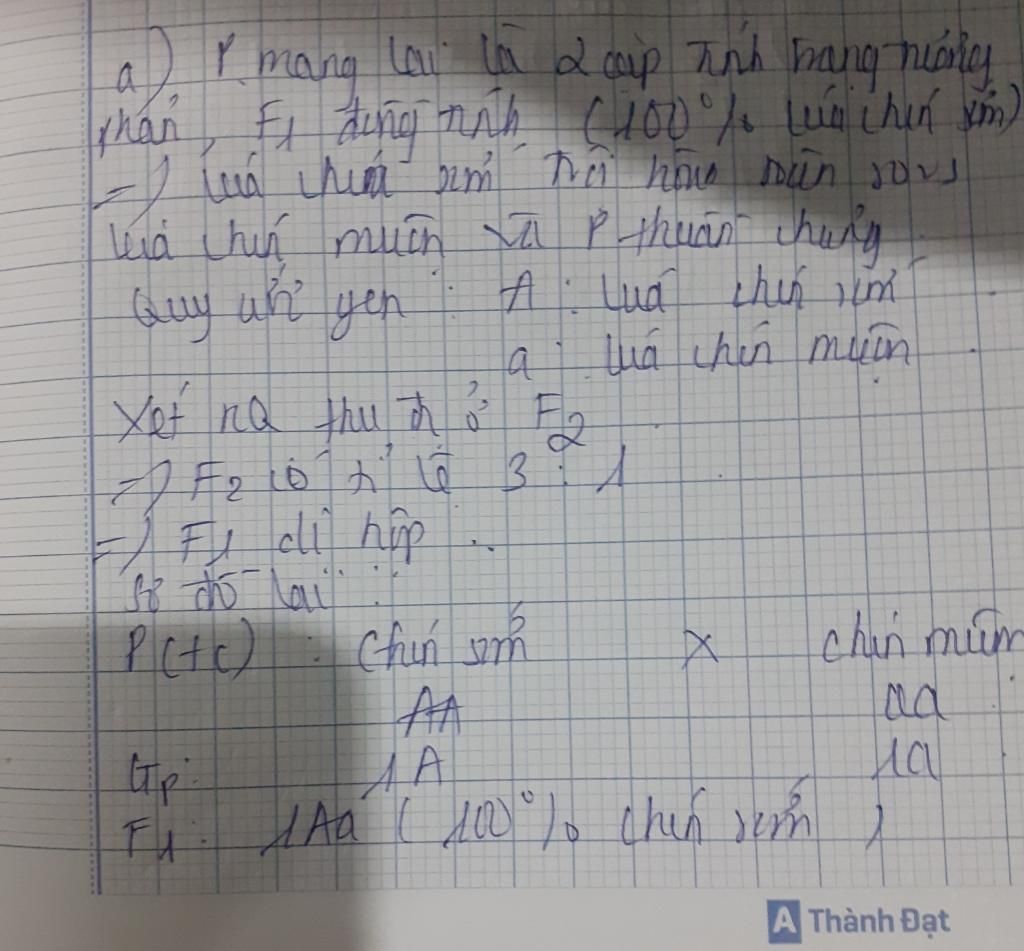 a) P mang lai là 2 cặp tính trạng tương
phản, F1 đồng tính (100% lúa chín sớm)
=> lúa chín sớm trội hoàn toàn so vs
lúa chín muộn và P thuần chủng.
Quy ước gen : A : lúa chín sớm
a : lúa chín muộn.
Xét KQ thu đc ở F2
=> F2 có tỉ lệ 3 : 1
=> F1 dị hợp.
Sơ đồ lai :
P(t/c) : Chín sớm X chín muộn
AA aa
Gp: 1A 1a
F1: 1Aa (100% chín sớm)
A Thành Đạt